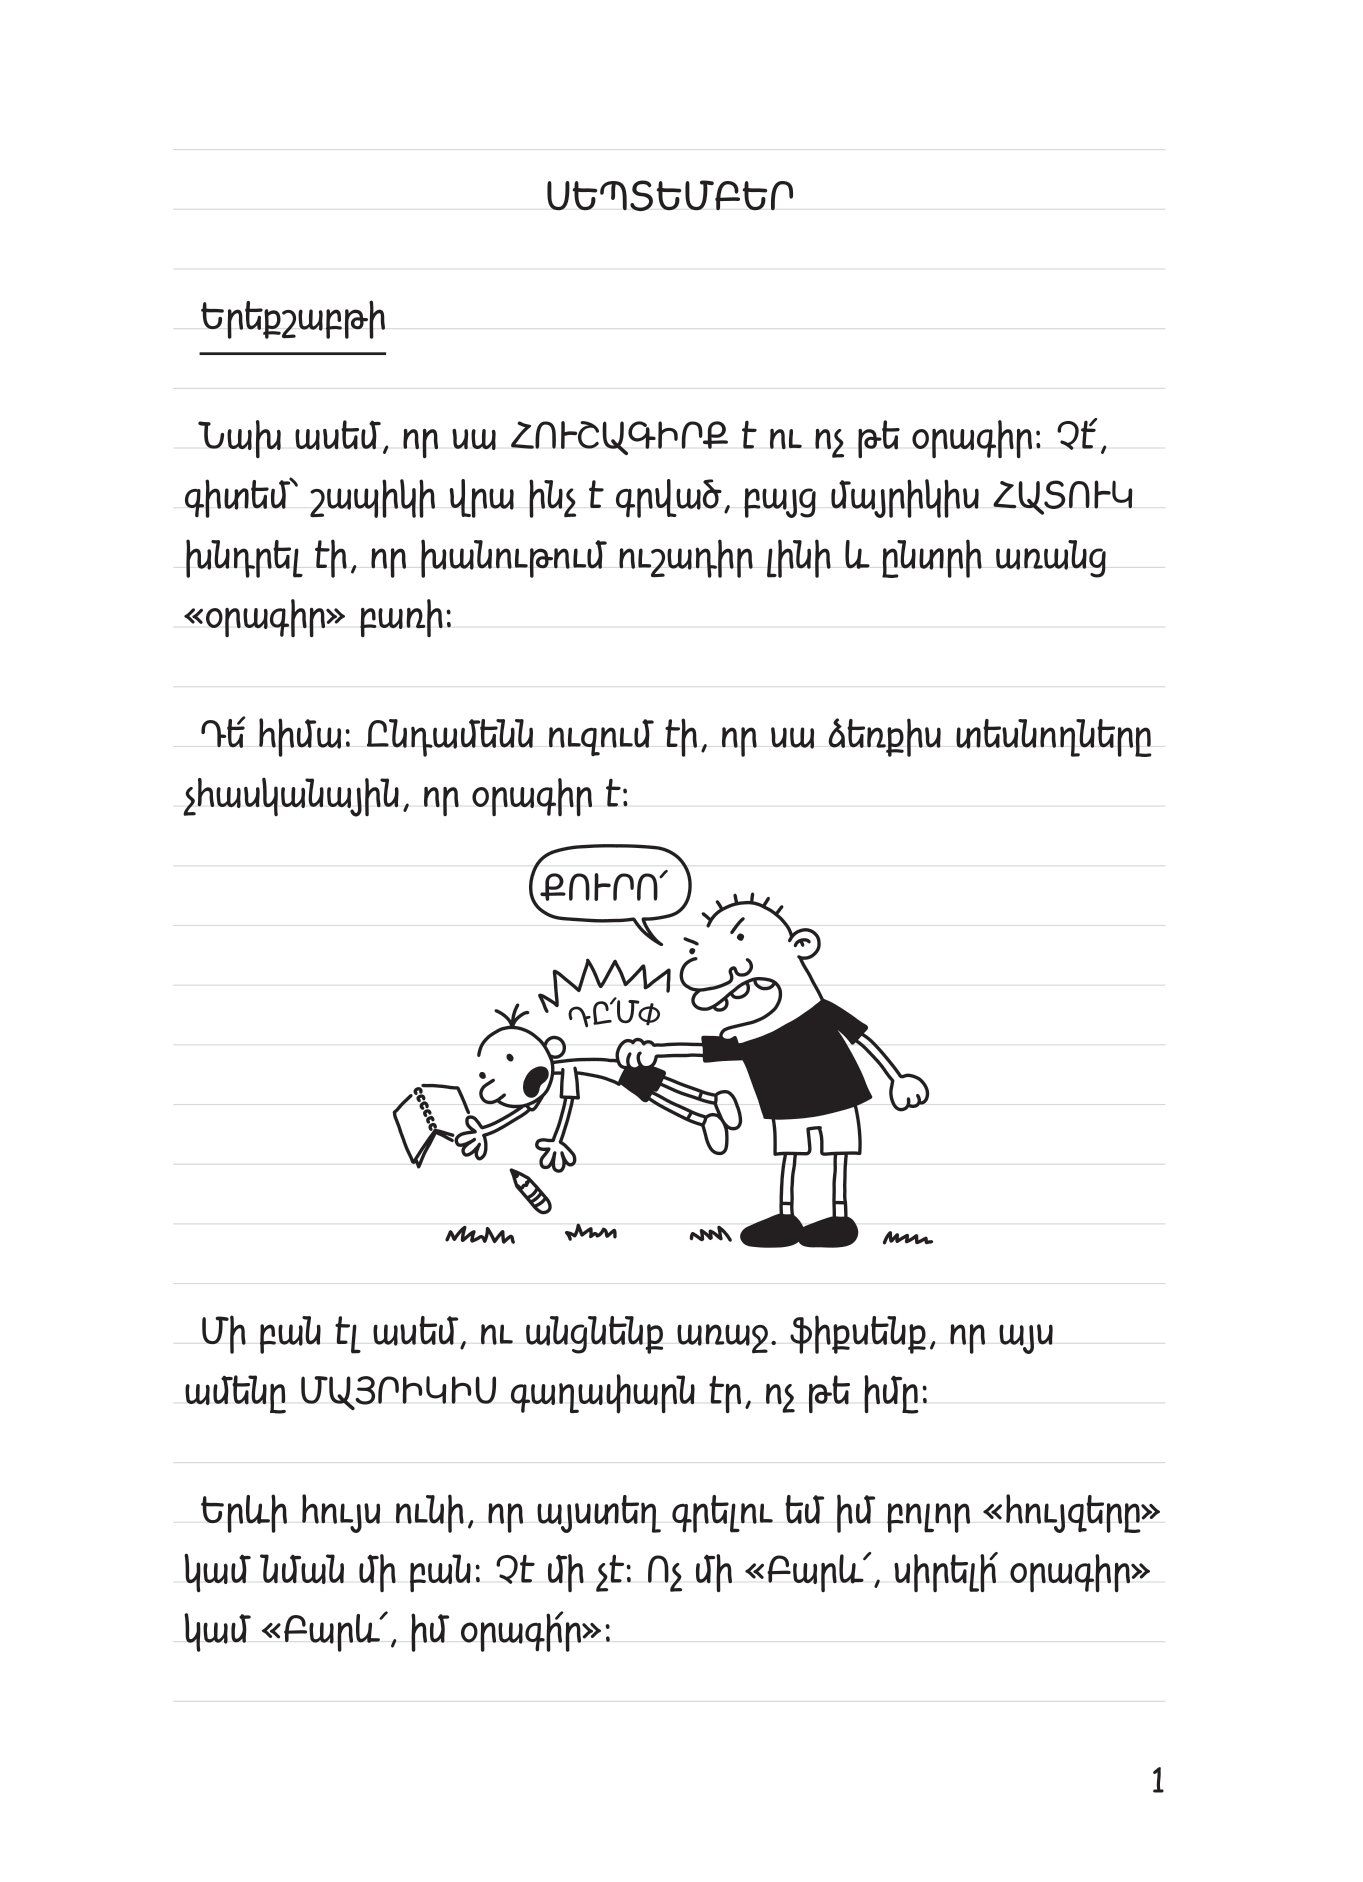 ՍԵՊՏԵՄԲԵՐ
Երեքշաբթի
Նախ ասեմ, որ սա ՀՈՒՇԱԳԻՐՔ է ու ոչ թե օրագիր։ Չէ՛,
գիտեմ՝ շապիկի վրա ինչ է գրված, բայց մայրիկիս ՀԱՏՈՒԿ
խնդրել էի, որ խանութում ուշադիր լինի և ընտրի առանց
«օրագիր» բառի։
Դե՛ հիմա։ Ընդամենն ուզում էի, որ սա ձեռքիս տեսնողները
չհասկանային, որ օրագիր է։
ՔՈՒՐՈ՛
ԴԸ՛ՄՓ
Մի բան էլ ասեմ, ու անցնենք առաջ. ֆիքսենք, որ այս
ամենը ՄԱՅՐԻԿԻՍ գաղափարն էր, ոչ թե իմը։
Երևի հույս ունի, որ այստեղ գրելու եմ իմ բոլոր «հույզերը»
կամ նման մի բան։ Չէ մի չէ։ Ոչ մի «Բարև՛, սիրելի՛ օրագիր»
կամ «Բարև՛, իմ օրագի՛ր»։
1